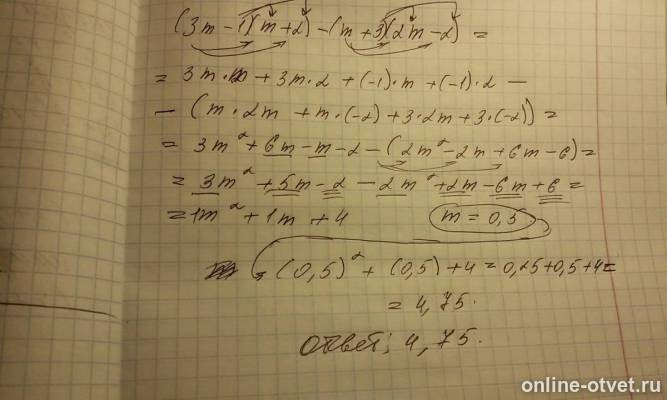 (3m - 1)(m + 2) - (m + 3)(2m - 2) =
= 3m·m + 3m·2 + (-1)·m + (-1)·2 -
- (m·2m + m·(-2) + 3·2m + 3·(-2)) =
= 3m² + 6m - m - 2 - (2m² - 2m + 6m - 6) =
= 3m² + 5m - 2 - 2m² + 2m - 6m + 6 =
= 1m² + 1m + 4 m = 0,5
(0,5)² + (0,5) + 4 = 0,25 + 0,5 + 4 =
= 4,75.
Ответ: 4,75.
online-otvet.ru